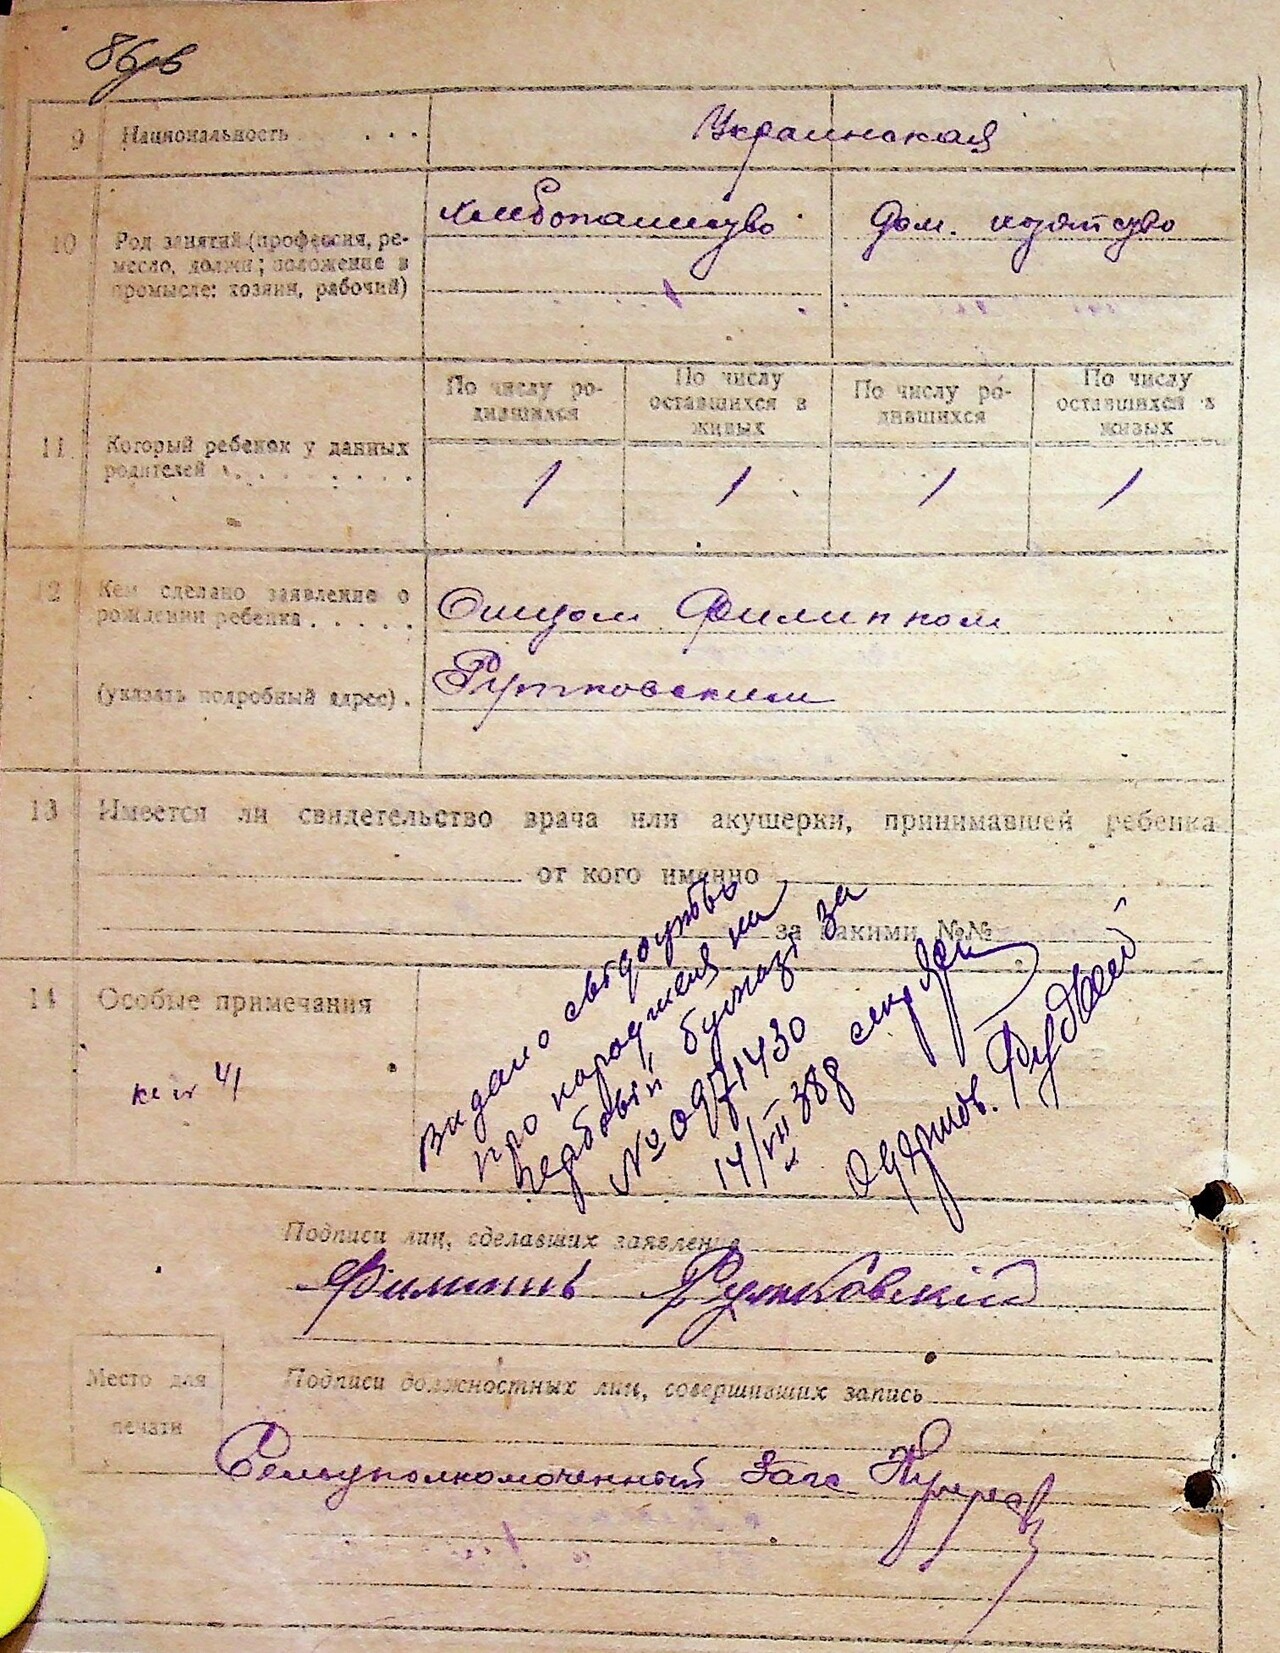 86об
9 Национальность . . . . Украинская
10 Род занятий (профессия, ре-
месло, должн; положение в
промысле: хозяин, рабочий)
хлебопашество Дом. хозяйство
По числу ро-
дившихся
По числу
оставшихся в
живых
По числу ро-
дившихся
По числу
оставшихся в
живых
11 Который ребенок у данных
родителей . . . . . . .
1 1 1 1
12 Кем сделано заявление о
рождении ребенка . . . . .
(указать подробный адрес) .
Отцом Филипком
Рутковским
13 Имеется ли свидетельство врача или акушерки, принимавшей ребенка
от кого именно
за какими №№
14 Особые примечания
Видано свідоцтво
про народженя на
гербовій бумазі за
№ 0971430
14/VII 388 секр
одержов.
Подписи лиц, сделавших заявление
Филипъ Рутковскій
Место для
печати
Подписи должностных лиц, совершивших запись
Сельуполкомоченный Загс